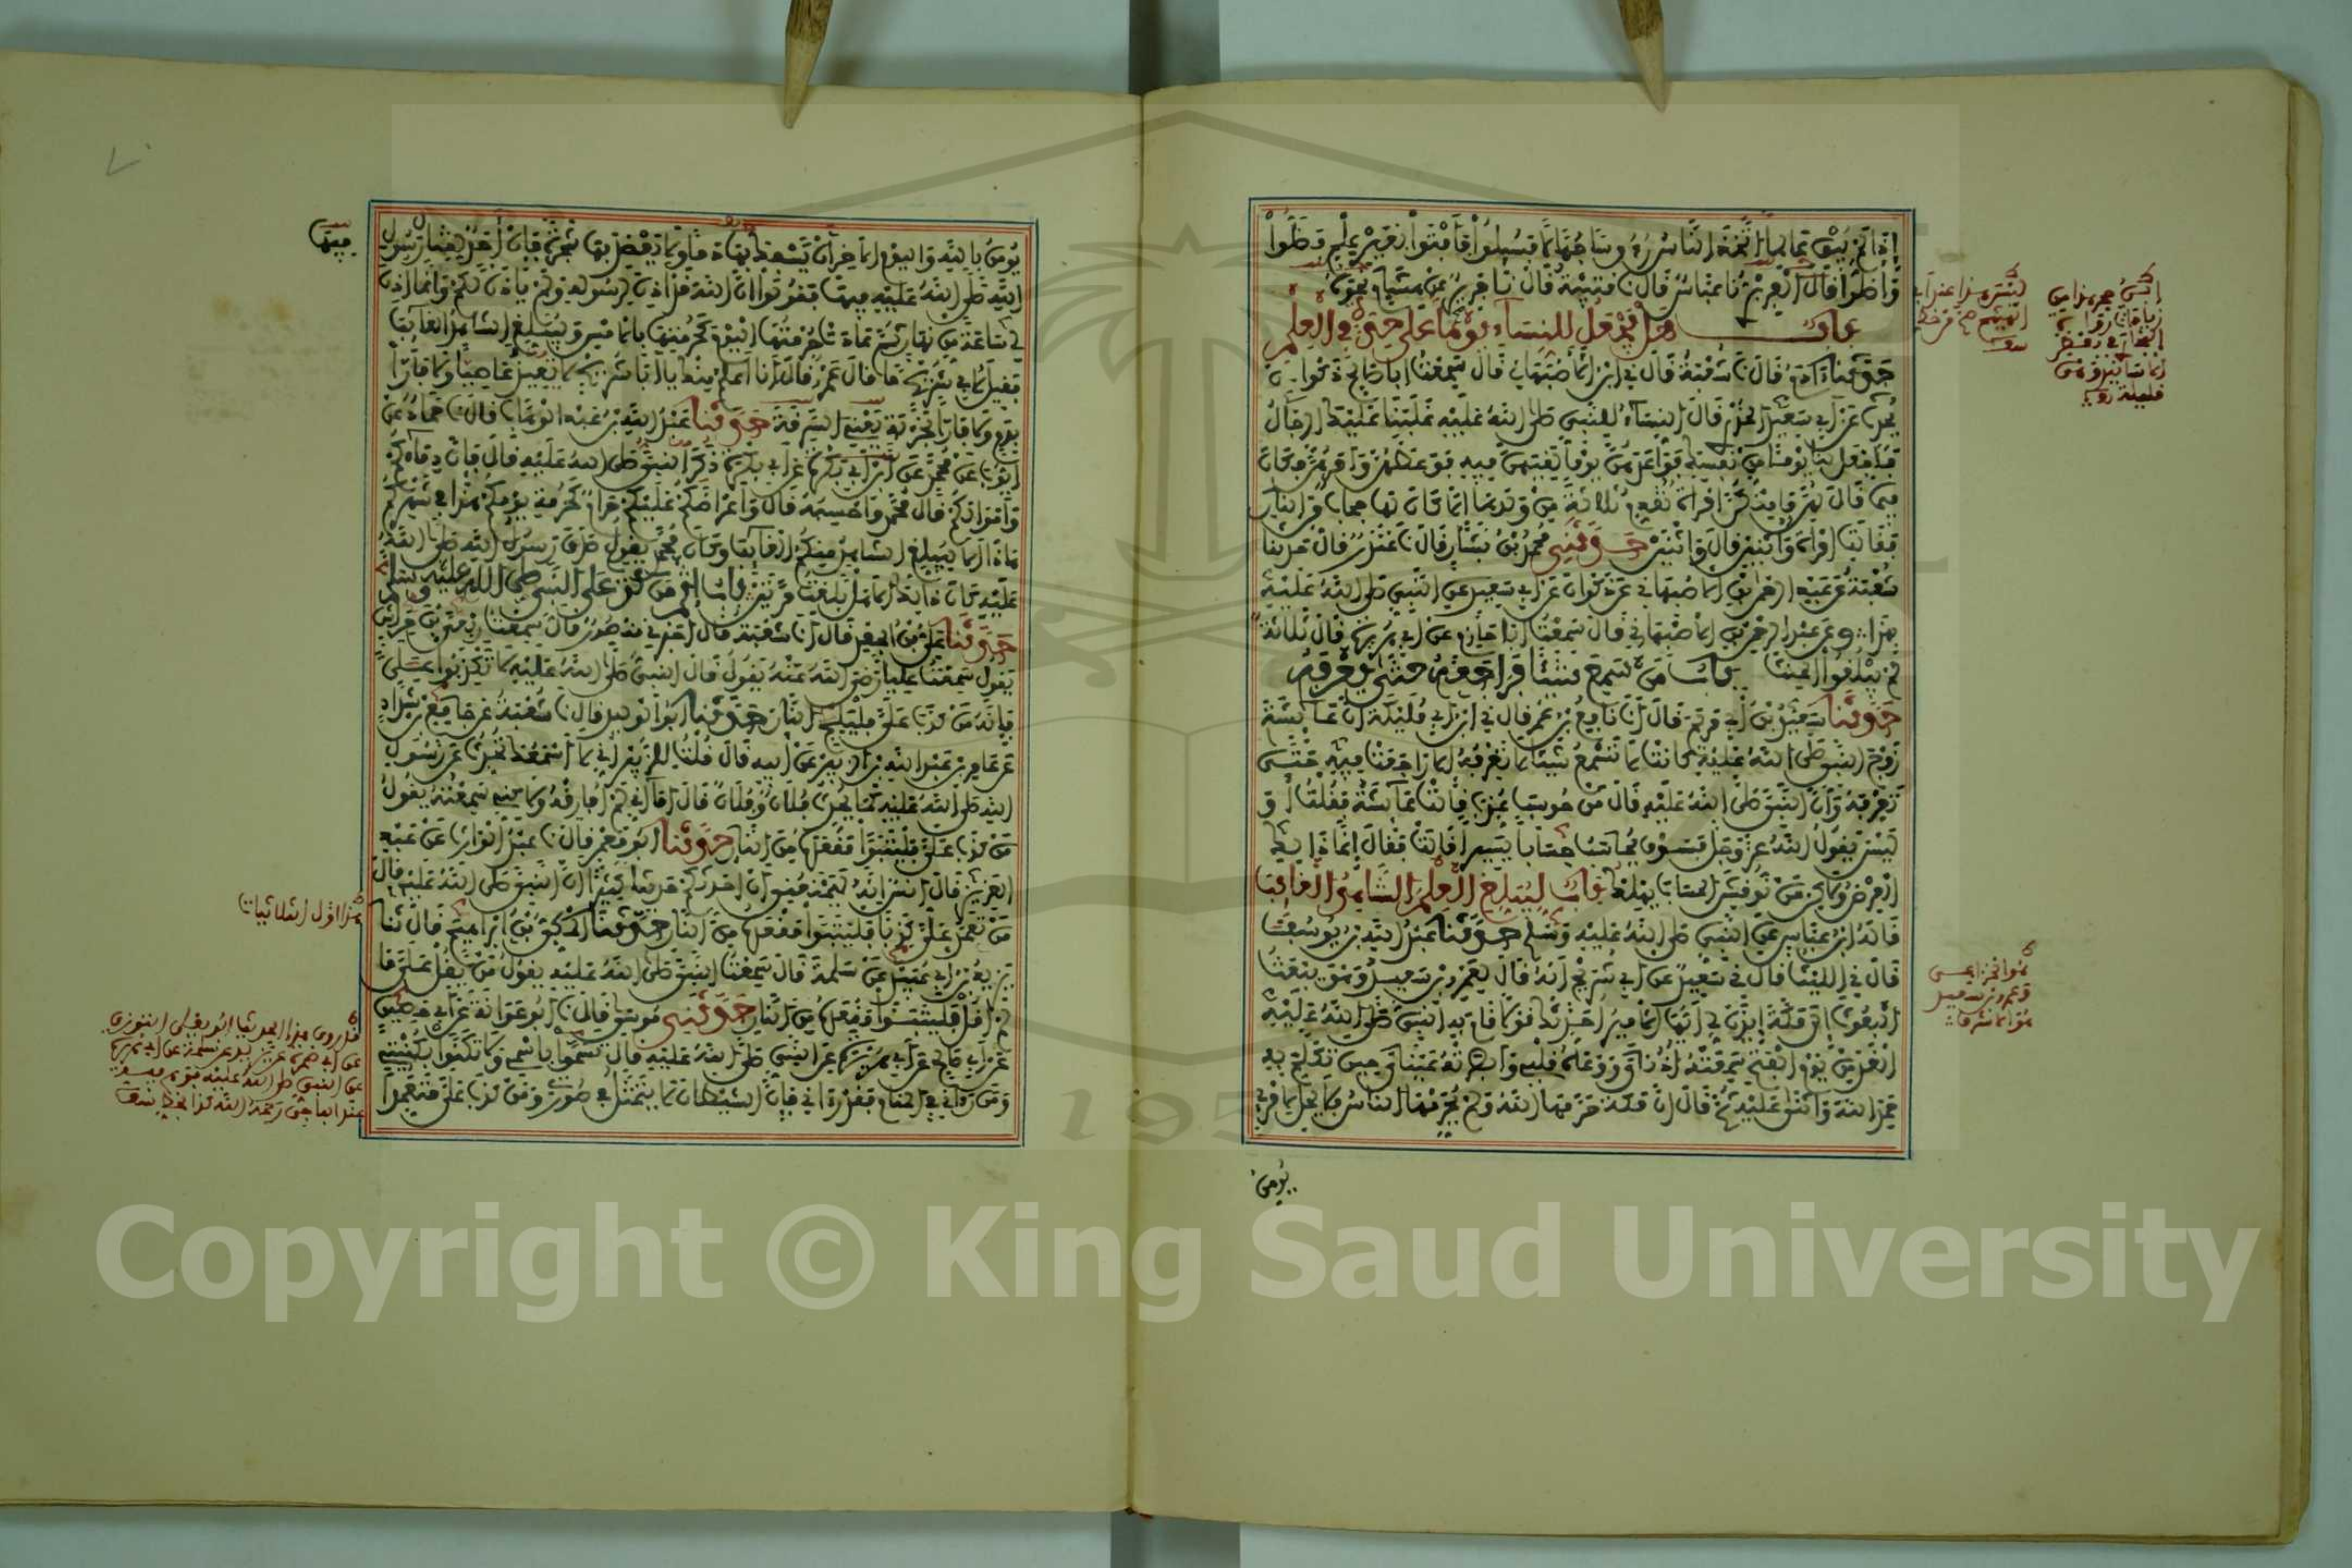 إذا لم يبق عالما اتخذ الناس رءوسا جهالا فسيلوا فأفتوا بغير علم فضلوا
وأضلوا قال الفربري نا عباس قال نا قتيبة قال نا جرير عن هشام نحوه
باب هل يجعل للنساء يوما على حدة في العلم
حدثنا ادم قال نا شعبة قال ني ابن الأصبهاني قال سمعت أبا صالح ذكوان
يحدث عن أبي سعيد الخدري قال النساء للنبي صلى الله عليه غلبنا عليك الرجال
فاجعل لنا يوما من نفسك فواعدهن يوما لقيهن فيه فوعظهن وأمرهن فكان
فيما قال لهن ما منكن امرأة تقدم ثلاثة من ولدها إلا كان لها حجابا من النار
فقالت امرأة واثنين قال واثنين حدثني محمد بن بشار قال نا غندر قال حدثنا
شعبة عن عبد الرحمن بن الأصبهاني عن ذكوان عن أبي سعيد عن النبي صلى الله عليه
بهذا وعن عبد الرحمن بن الأصبهاني قال سمعت أبا حازم عن أبي هريرة قال ثلاثة
لم يبلغوا الحنث باب من سمع شيئا فراجعه حتى يعرفه
حدثنا سعيد بن أبي مريم قال أنا نافع بن عمر قال ني ابن أبي مليكة أن عائشة
زوج النبي صلى الله عليه كانت لا تسمع شيئا لا تعرفه إلا راجعت فيه حتى
تعرفه وأن النبي صلى الله عليه قال من حوسب عذب قالت عائشة فقلت أو
ليس يقول الله عز وجل فسوف يحاسب حسابا يسيرا قالت فقال إنما ذلك
العرض ولكن من نوقش الحساب يهلك باب ليبلغ العلم الشاهد الغائب
قاله ابن عباس عن النبي صلى الله عليه وسلم حدثنا عبد الله بن يوسف
قال ني الليث قال ني سعيد عن أبي شريح أنه قال لعمرو بن سعيد وهو يبعث
البعوث إلى مكة إيذن لي أيها الأمير أحدثك قولا قام به النبي صلى الله عليه
الغد من يوم الفتح سمعته أذناي ووعاه قلبي وأبصرته عيناي حين تكلم به
حمد الله وأثنى عليه ثم قال إن مكة حرمها الله ولم يحرمها الناس فلا يحل لامرئ
يومن
يومن بالله واليوم الآخر أن يسفك بها دما ولا يعضد بها شجرة فإن أحد ترخص لقتال رسول
الله صلى الله عليه فيها فقولوا إن الله قد أذن لرسوله ولم ياذن لكم وإنما أذن
لي ساعة من نهار ثم عادت حرمتها اليوم كحرمتها بالأمس وليبلغ الشاهد الغائب
فقيل لأبي شريح ما قال عمرو قال أنا أعلم منك يابا شريح لا تعيذ عاصيا ولا فارا
بدم ولا فارا بخربة يعني السرقة حدثنا عبد الله بن عبد الوهاب قال نا حماد عن
أيوب عن محمد عن ابن أبي بكرة عن أبي بكرة ذكر النبي صلى الله عليه قال فإن دماءكم
وأموالكم قال محمد وأحسبه قال وأعراضكم عليكم حرام كحرمة يومكم هذا في شهركم
هذا ألا ليبلغ الشاهد منكم الغائب وكان محمد يقول صدق رسول الله صلى الله
عليه كان ذلك ألا هل بلغت مرتين باب إثم من كذب على النبي صلى الله عليه وسلم
حدثنا علي بن الجعد قال أنا شعبة قال أخبرني منصور قال سمعت ربعي بن حراش
يقول سمعت عليا رضي الله عنه يقول قال النبي صلى الله عليه لا تكذبوا علي
فإنه من كذب علي فليلج النار حدثنا أبو الوليد قال نا شعبة عن جامع بن شداد
عن عامر بن عبد الله بن الزبير عن أبيه قال قلت للزبير إني لا أسمعك تحدث عن رسول
الله صلى الله عليه كما يحدث فلان وفلان قال أما إني لم أفارقه ولكني سمعته يقول
من كذب علي فليتبوأ مقعده من النار حدثنا أبو معمر قال نا عبد الوارث عن عبد
العزيز قال أنس إنه ليمنعني أن أحدثكم حديثا كثيرا أن النبي صلى الله عليه قال
من تعمد علي كذبا فليتبوأ مقعده من النار حدثنا المكي بن إبراهيم قال نا
يزيد بن أبي عبيد عن سلمة قال سمعت النبي صلى الله عليه يقول من يقل علي ما
لم أقل فليتبوأ مقعده من النار حدثني موسى قال نا أبو عوانة عن أبي حصين
عن أبي صالح عن أبي هريرة عن النبي صلى الله عليه قال تسموا باسمي ولا تكنوا بكنيتي
ومن رآني في المنام فقد رآني فإن الشيطان لا يتمثل في صورتي ومن كذب علي متعمدا
هذا أول الثلاثيات